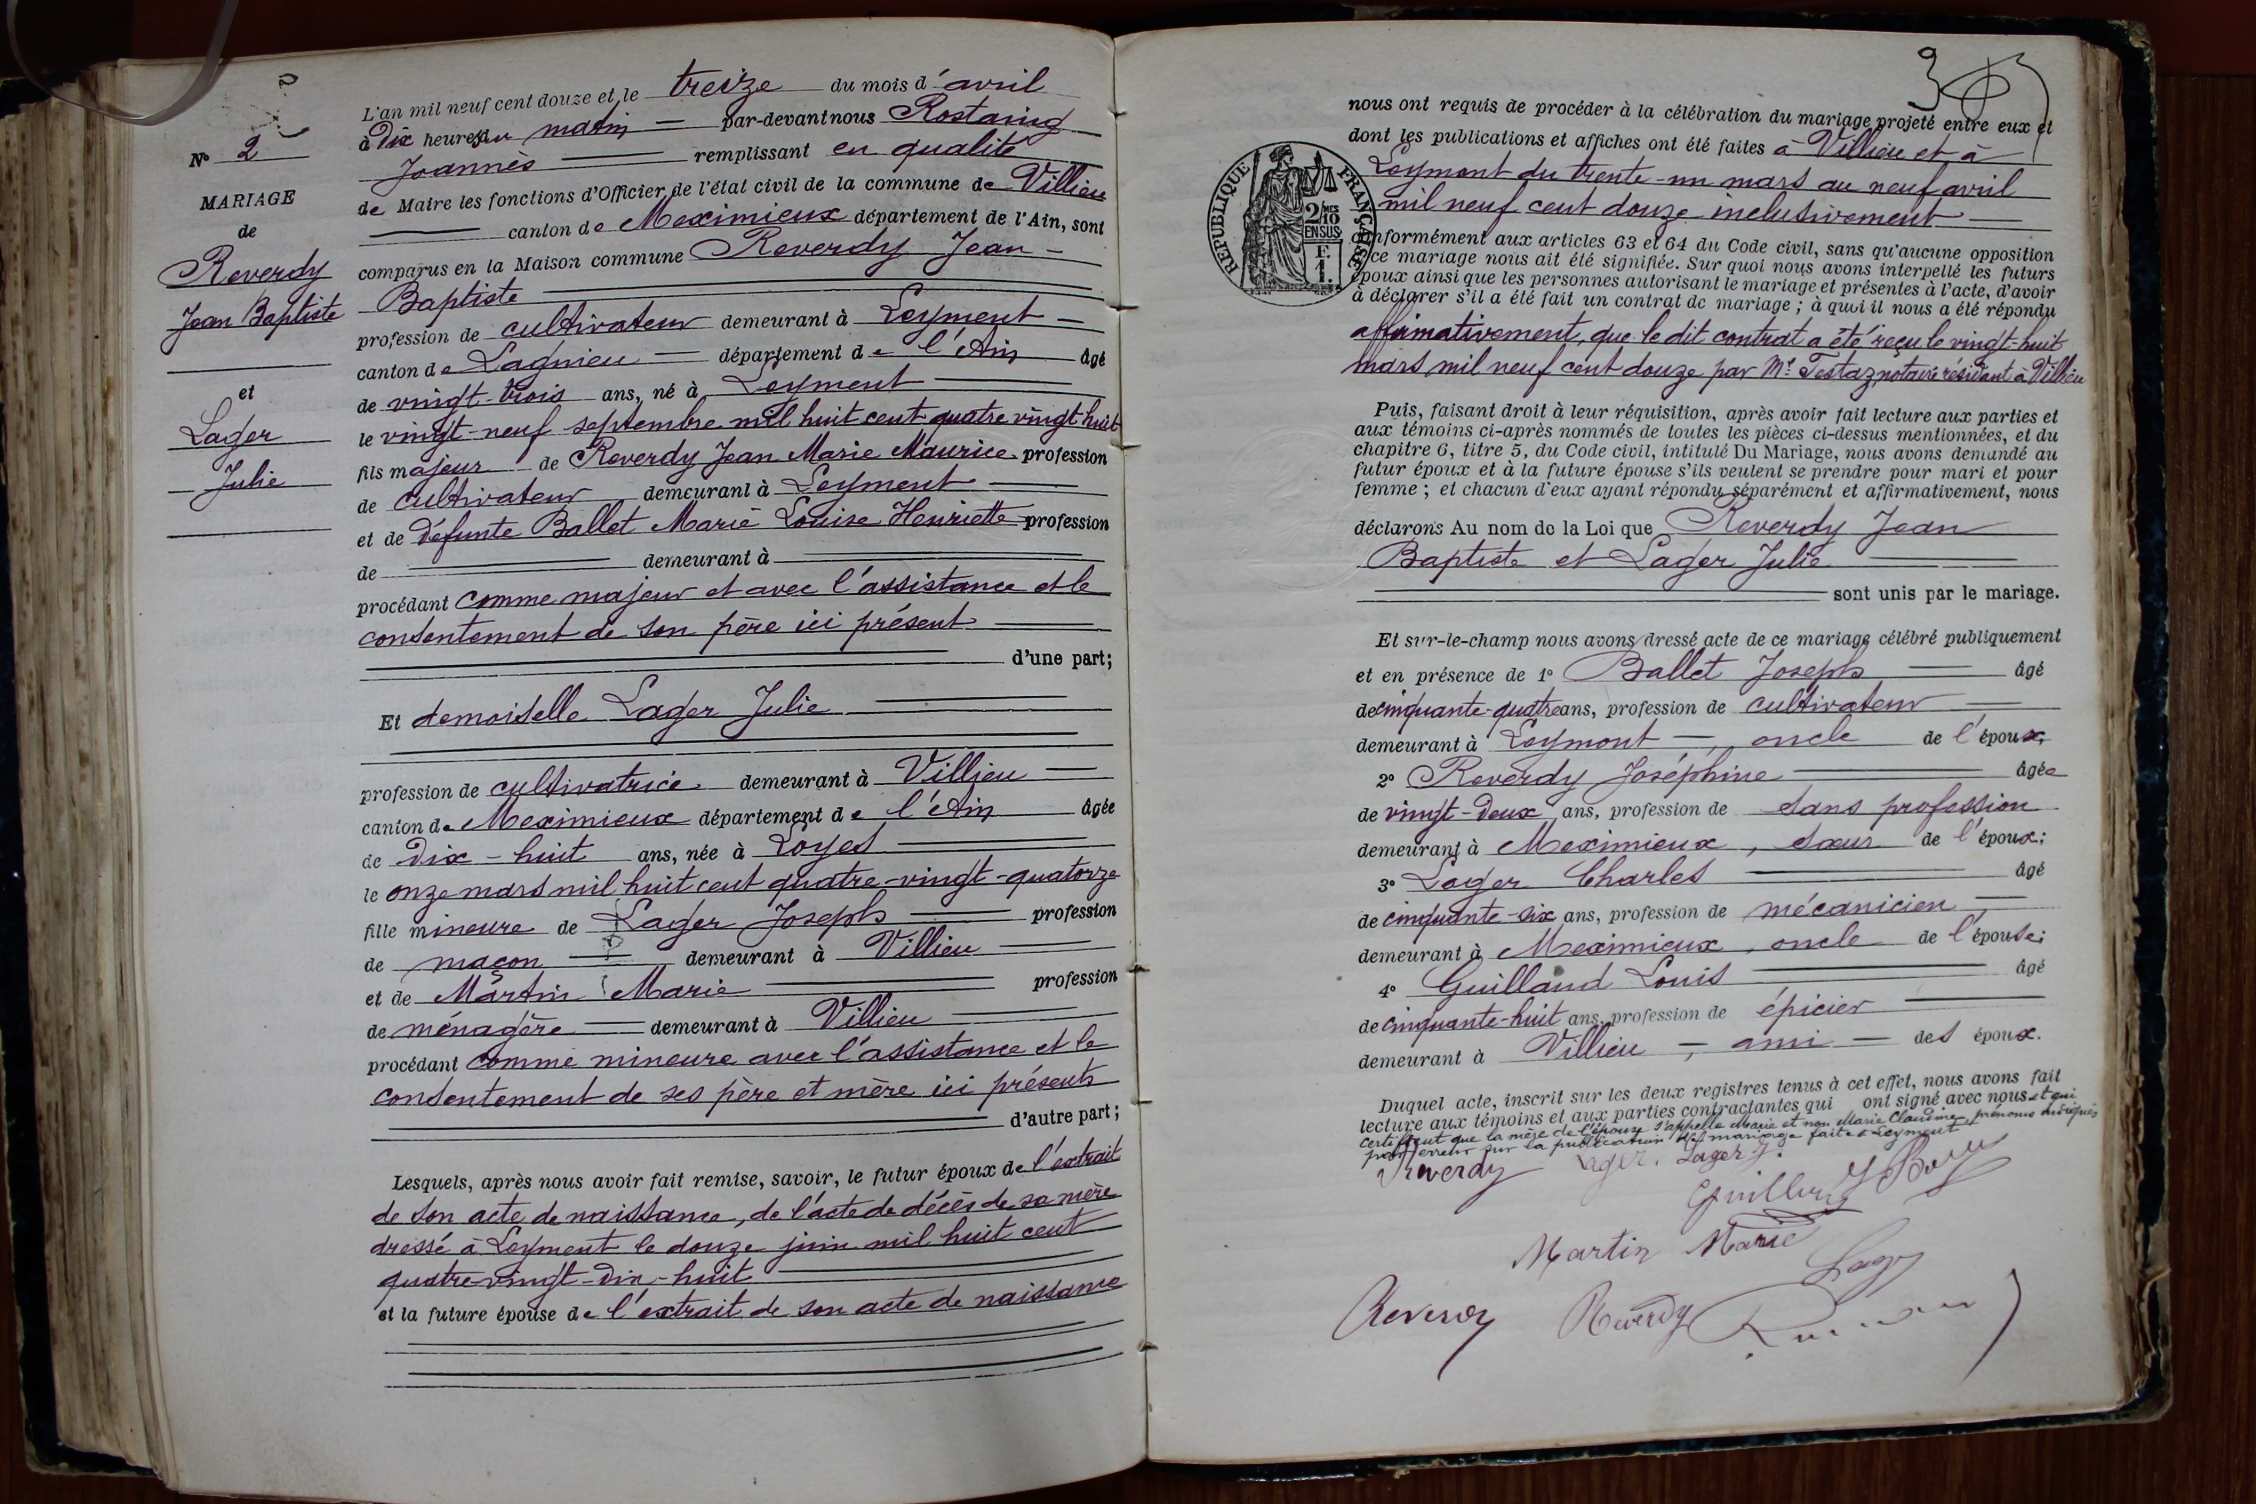 L'an mil neuf cent douze et le treize du mois d'avril
à Dix heures du matin par-devant nous Rostaing
Joannès remplissant en qualité
de Maire les fonctions d'Officier de l'état civil de la commune de Villieu
canton de Meximieux département de l'Ain, sont
comparus en la Maison commune Reverdy Jean
Baptiste
profession de cultivateur demeurant à Leyment
canton de Lagnieu département de l'Ain âgé
de vingt-trois ans, né à Leyment
le vingt-neuf septembre mil huit cent quatre vingt huit
fils majeur de Reverdy Jean Marie Maurice profession
de cultivateur demeurant à Leyment
et de défunte Ballet Marie Louise Henriette profession
de demeurant à
procédant comme majeur et avec l'assistance et le
consentement de son père ici présent
d'une part;
Et demoiselle Lager Julie
profession de cultivatrice demeurant à Villieu
canton de Meximieux département de l'Ain âgée
de Dix-huit ans, née à Loyes
le onze mars mil huit cent quatre-vingt-quatorze
fille mineure de Lager Joseph profession
de maçon demeurant à Villieu
et de Martin Marie profession
de ménagère demeurant à Villieu
procédant comme mineure avec l'assistance et le
consentement de ses père et mère ici présents
d'autre part;
Lesquels, après nous avoir fait remise, savoir, le futur époux de l'extrait
de son acte de naissance, de l'acte de décès de sa mère
dressé à Leyment le douze juin mil huit cent
quatre-vingt-dix-huit
et la future épouse de l'extrait de son acte de naissance
N° 2
MARIAGE
de
Reverdy
Jean Baptiste
et
Lager
Julie
3
nous ont requis de procéder à la célébration du mariage projeté entre eux et
dont les publications et affiches ont été faites à Villieu et à
Leyment du trente-un mars au neuf avril
mil neuf cent douze inclusivement
conformément aux articles 63 et 64 du Code civil, sans qu'aucune opposition
ce mariage nous ait été signifiée. Sur quoi nous avons interpellé les futurs
époux ainsi que les personnes autorisant le mariage et présentes à l'acte, d'avoir
à déclarer s'il a été fait un contrat de mariage; à quoi il nous a été répondu
affirmativement, que le dit contrat a été reçu le vingt-huit
mars mil neuf cent douze par Me Testaz notaire résidant à Villieu
RÉPUBLIQUE FRANÇAISE
2/10 MES
EN SUS
F.
1.
Puis, faisant droit à leur réquisition, après avoir fait lecture aux parties et
aux témoins ci-après nommés de toutes les pièces ci-dessus mentionnées, et du
chapitre 6, titre 5, du Code civil, intitulé Du Mariage, nous avons demandé au
futur époux et à la future épouse s'ils veulent se prendre pour mari et pour
femme; et chacun d'eux ayant répondu séparément et affirmativement, nous
déclarons Au nom de la Loi que Reverdy Jean
Baptiste et Lager Julie
sont unis par le mariage.
Et sur-le-champ nous avons dressé acte de ce mariage célébré publiquement
et en présence de 1° Ballet Joseph âgé
de cinquante-quatre ans, profession de cultivateur
demeurant à Leyment, oncle de l'époux;
2° Reverdy Joséphine âgée
de vingt-deux ans, profession de sans profession
demeurant à Meximieux, sœur de l'époux;
3° Lager Charles âgé
de cinquante-six ans, profession de mécanicien
demeurant à Meximieux, oncle de l'épouse;
4° Guilland Louis âgé
de cinquante-huit ans, profession de épicier
demeurant à Villieu, ami des époux.
Duquel acte, inscrit sur les deux registres tenus à cet effet, nous avons fait
lecture aux témoins et aux parties contractantes qui ont signé avec nous et qui
certifient que la mère de l'épouse s'appelle Marie et non Marie Claudine, prénoms indiqués
par erreur sur la publication de mariage faite à Leyment
Reverdy Lager. Lager J.
Martin Marie
Lager
Reverdy Reverdy